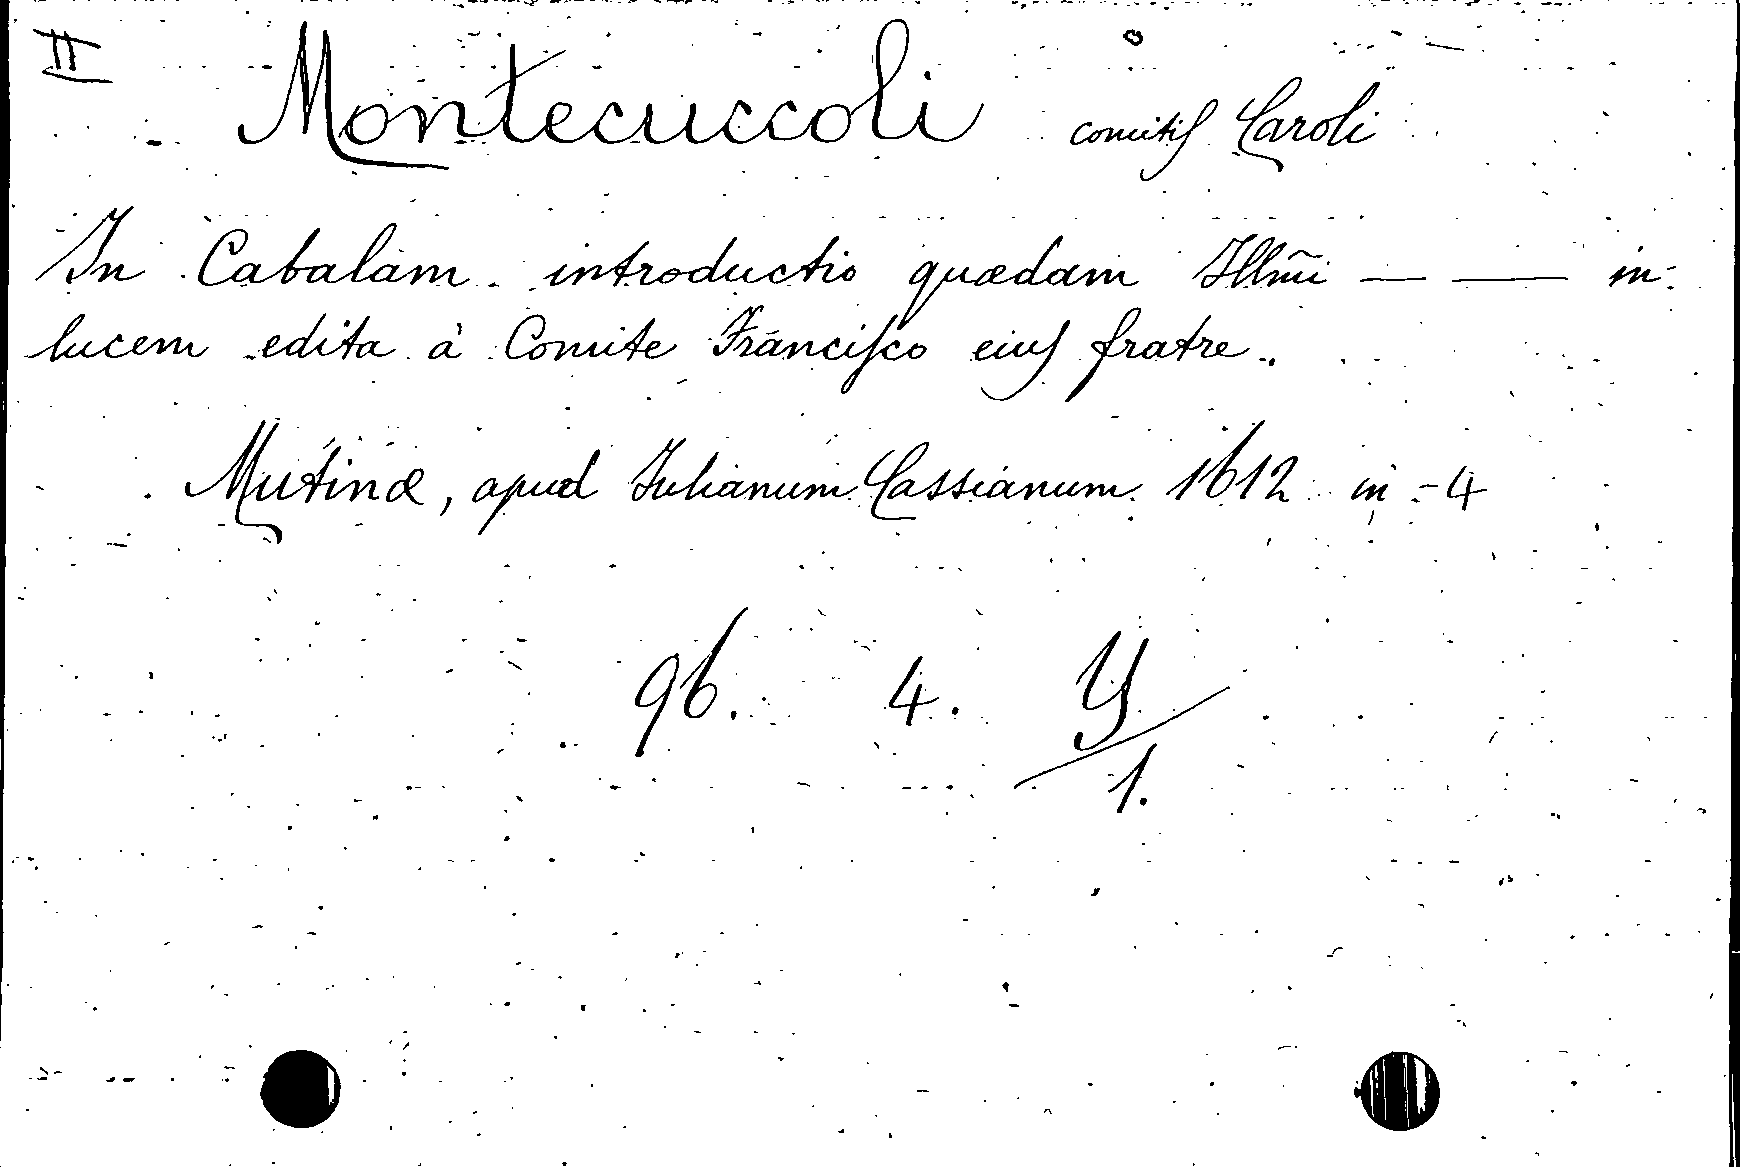 II
Montecuccoli comitiſ Caroli
In Cabalam introductio quædam Illm̃i — — in
lucem edita à Comite Franciſco eiuſ fratre.
Mutinæ, apud Iulianum Cassianum 1612 in-4
96. 4. Y/1.